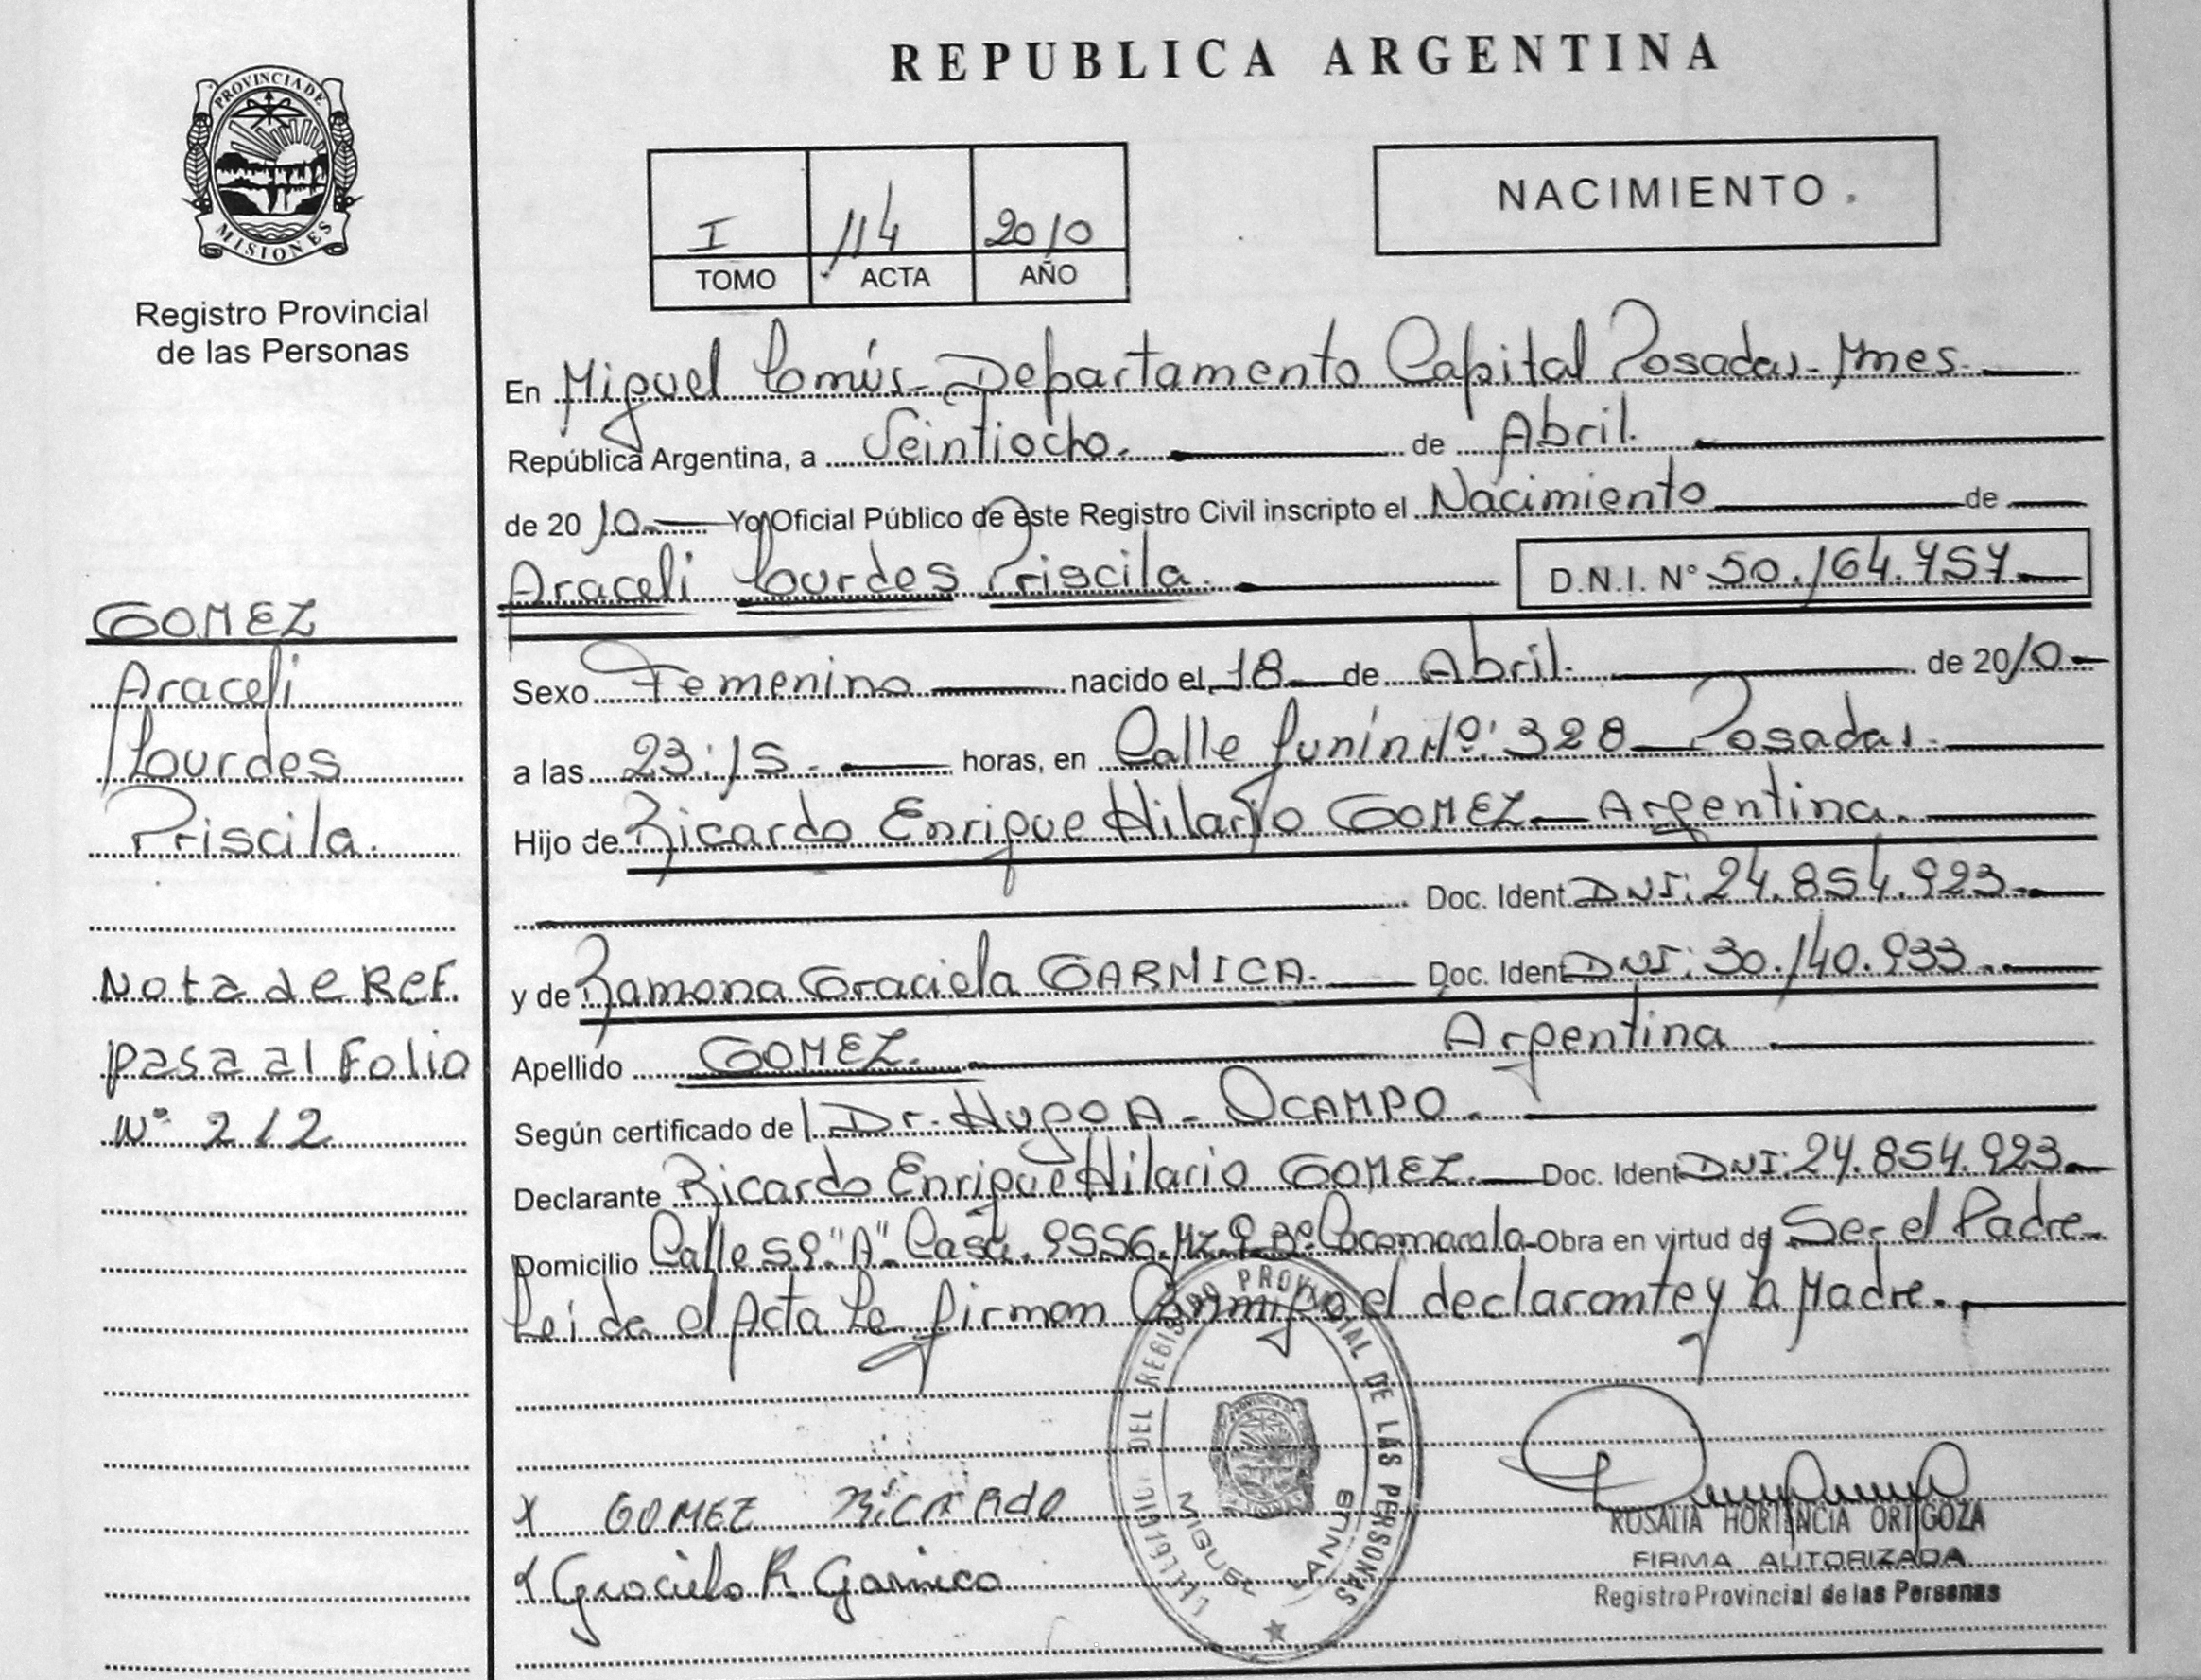 REPUBLICA ARGENTINA
PROVINCIA DE
MISIONES
Registro Provincial
de las Personas
I 114 2010
TOMO ACTA AÑO
NACIMIENTO
En Miguel Lanús - Departamento Capital Posadas - Mnes.
República Argentina, a Veintiocho. de Abril.
de 2010 Yo, Oficial Público de este Registro Civil inscripto el Nacimiento de
Araceli Lourdes Priscila. D.N.I. N° 50.164.757
Sexo Femenino nacido el 18 de Abril. de 2010
a las 23:15. horas, en Calle Junín Nº: 328 - Posadas.
Hijo de Ricardo Enrique Hilario GOMEZ - Argentina.
Doc. Ident. DNI: 24.854.923.
y de Ramona Graciela GARNICA. Doc. Ident. DNI: 30.140.933.
Apellido GOMEZ. Argentina
Según certificado de Dr. Hugo A. OCAMPO.
Declarante Ricardo Enrique Hilario GOMEZ. Doc. Ident. DNI: 24.854.923.
Domicilio Calle 59 "A" Casa. 9556. Mz. 9 Bº Cocomarola - Obra en virtud de Ser el Padre.
Leída el Acta la firman Conmigo el declarante y la Madre.
GOMEZ
Araceli
Lourdes
Priscila.
Nota de Ref.
pasa al Folio
N° 212
X GOMEZ RICARDO
X Graciela R Garnica
DEL REGISTRO PROVINCIAL DE LAS PERSONAS
MIGUEL LANUS
ROSALIA HORTENCIA ORTIGOZA
FIRMA AUTORIZADA
Registro Provincial de las Personas